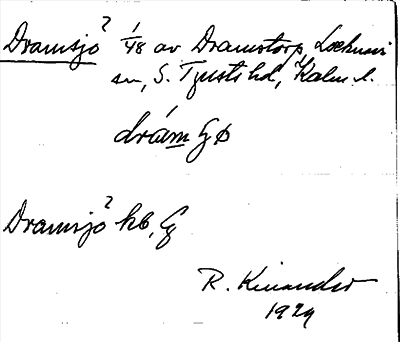 Dramsjö? 1/48 av Dramstorp, Locknevi
sn, S. Tjusts hd, Kalm. l.
drám
Dramsjö? hb,
R. Kinander
1929